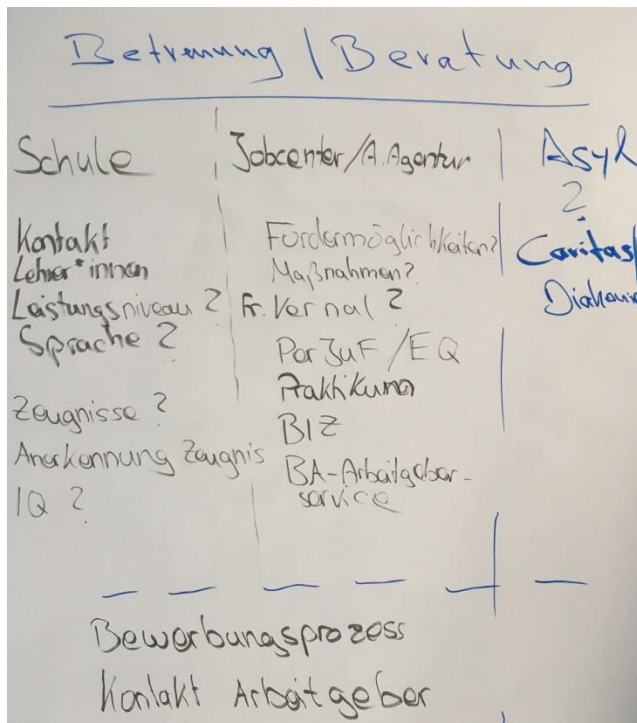 Betreuung / Beratung
Schule
Kontakt
Lehrer*innen
Leistungsniveau?
Sprache?
Zeugnisse?
Anerkennung Zeugnis
IQ?
Jobcenter/A.Agentur
Fördermöglichkeiten?
Maßnahmen?
Fr. Vernal?
PerJuF/EQ
Praktikum
BIZ
BA-Arbeitgeber-
service
Asyl
?
Caritas/
Diakonie
Bewerbungsprozess
Kontakt Arbeitgeber